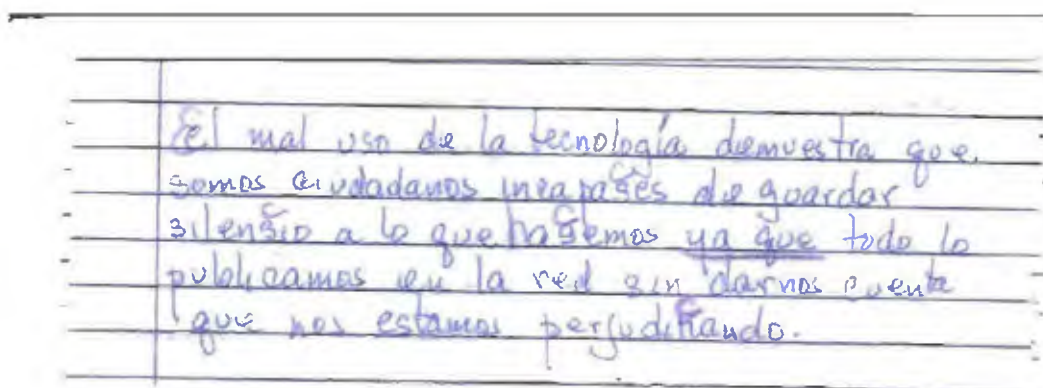 El mal uso de la tecnología demuestra que
somos ciudadanos incapaces de guardar
silencio a lo que hacemos ya que todo lo
publicamos en la red sin darnos cuenta
que nos estamos perjudicando.